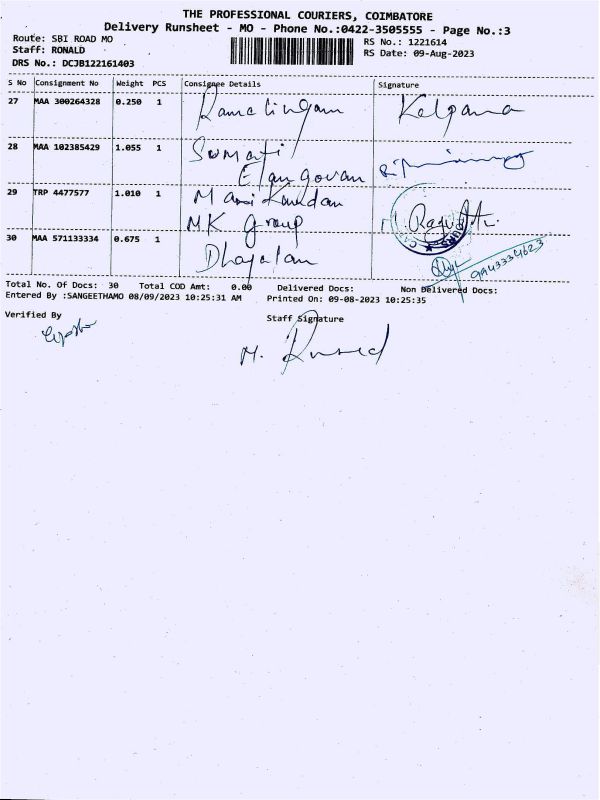 THE PROFESSIONAL COURIERS, COIMBATORE
Delivery Runsheet - MO - Phone No.:0422-3505555 - Page No.:3
Route: SBI ROAD MO RS No.: 1221614
Staff: RONALD RS Date: 09-Aug-2023
DRS No.: DCJB122161403
S No Consignment No Weight PCS Consignee Details Signature
27 MAA 300264328 0.250 1 Ramalingam Kalpana
28 MAA 102385429 1.055 1 Sumati
Elangovan
29 TRP 4477577 1.010 1 Manikandan
MK group
30 MAA 571133334 0.675 1 Dhayalan
9943334623
Total No. Of Docs: 30 Total COD Amt: 0.00 Delivered Docs: Non Delivered Docs:
Entered By :SANGEETHAMO 08/09/2023 10:25:31 AM Printed On: 09-08-2023 10:25:35
Verified By Staff Signature
M.